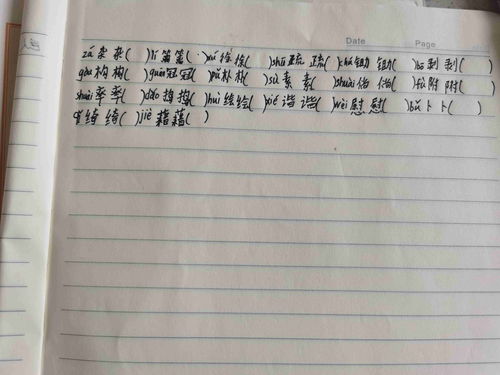 Date Page
zá 杂 杂( )lí 篱 篱( )xú 徐 徐( )shū 疏 疏( )chú 锄 锄( )bō 剥 剥(
gòu 构 构( )guān 冠 冠( )pǔ 朴 朴( )sù 素 素( )shuài 蟀 蟀( )fù 附 附( )
shuài 率 率( )dǎo 捣 捣( )huì 绘 绘( )xié 谐 谐( )wèi 慰 慰( )bǔ 卜 卜( )
qǐ 绮 绮( )jiè 藉 藉( )